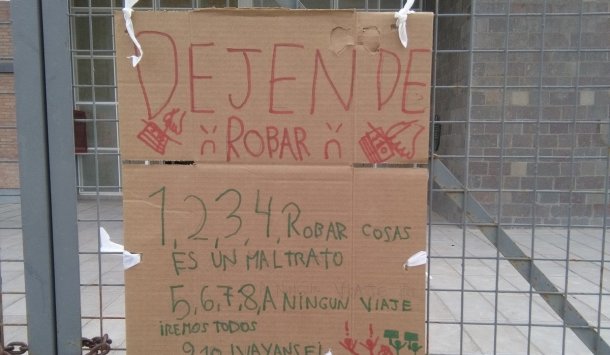 DEJEN DE
ROBAR
1,2,3,4, ROBAR COSAS
ES UN MALTRATO
5,6,7,8, A NINGUN VIAJE
IREMOS TODOS
9,10 ¡VAYANSE!